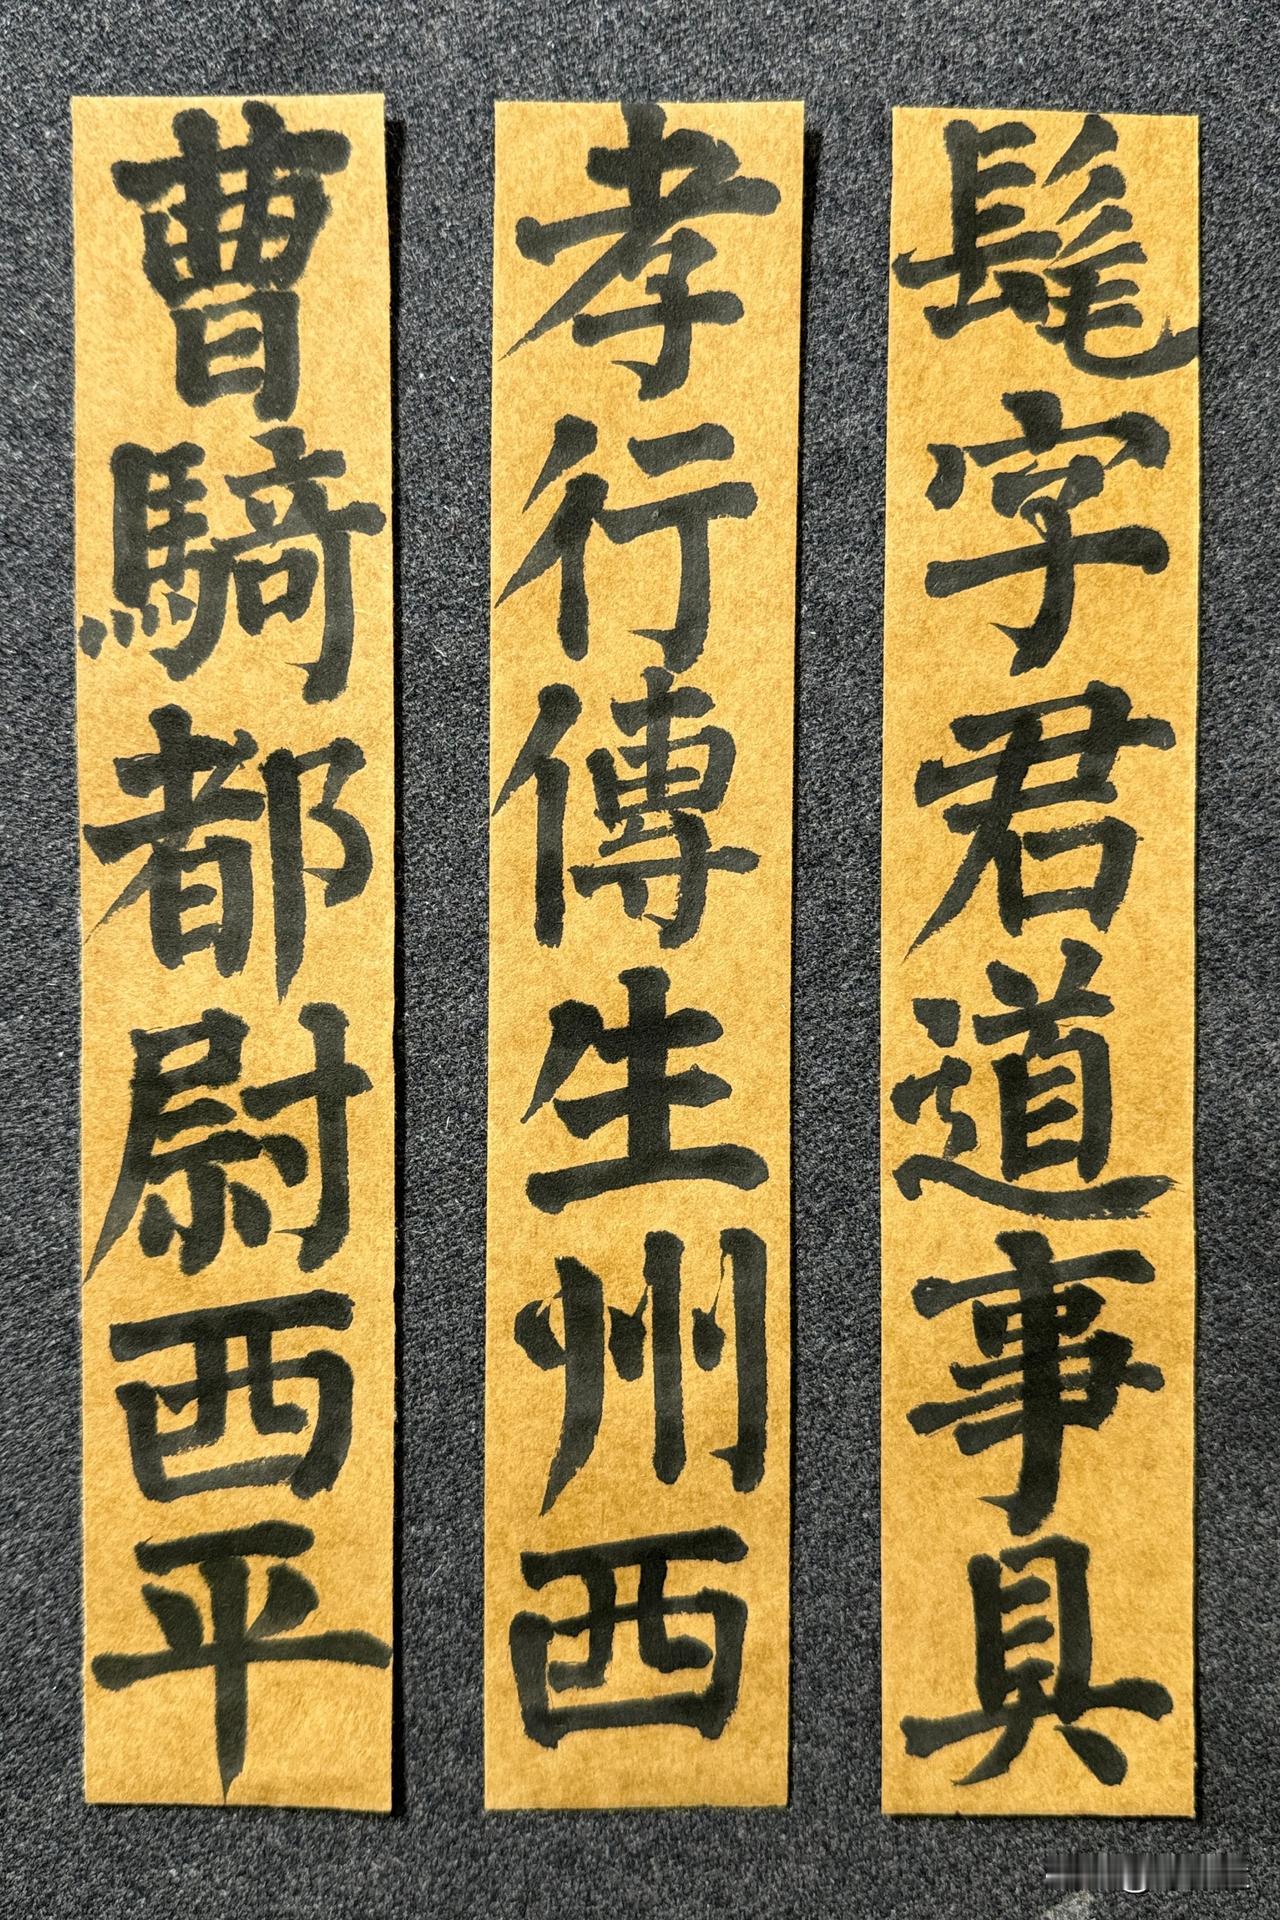 髦字君道事具
孝行傳生州西
曹騎都尉西平